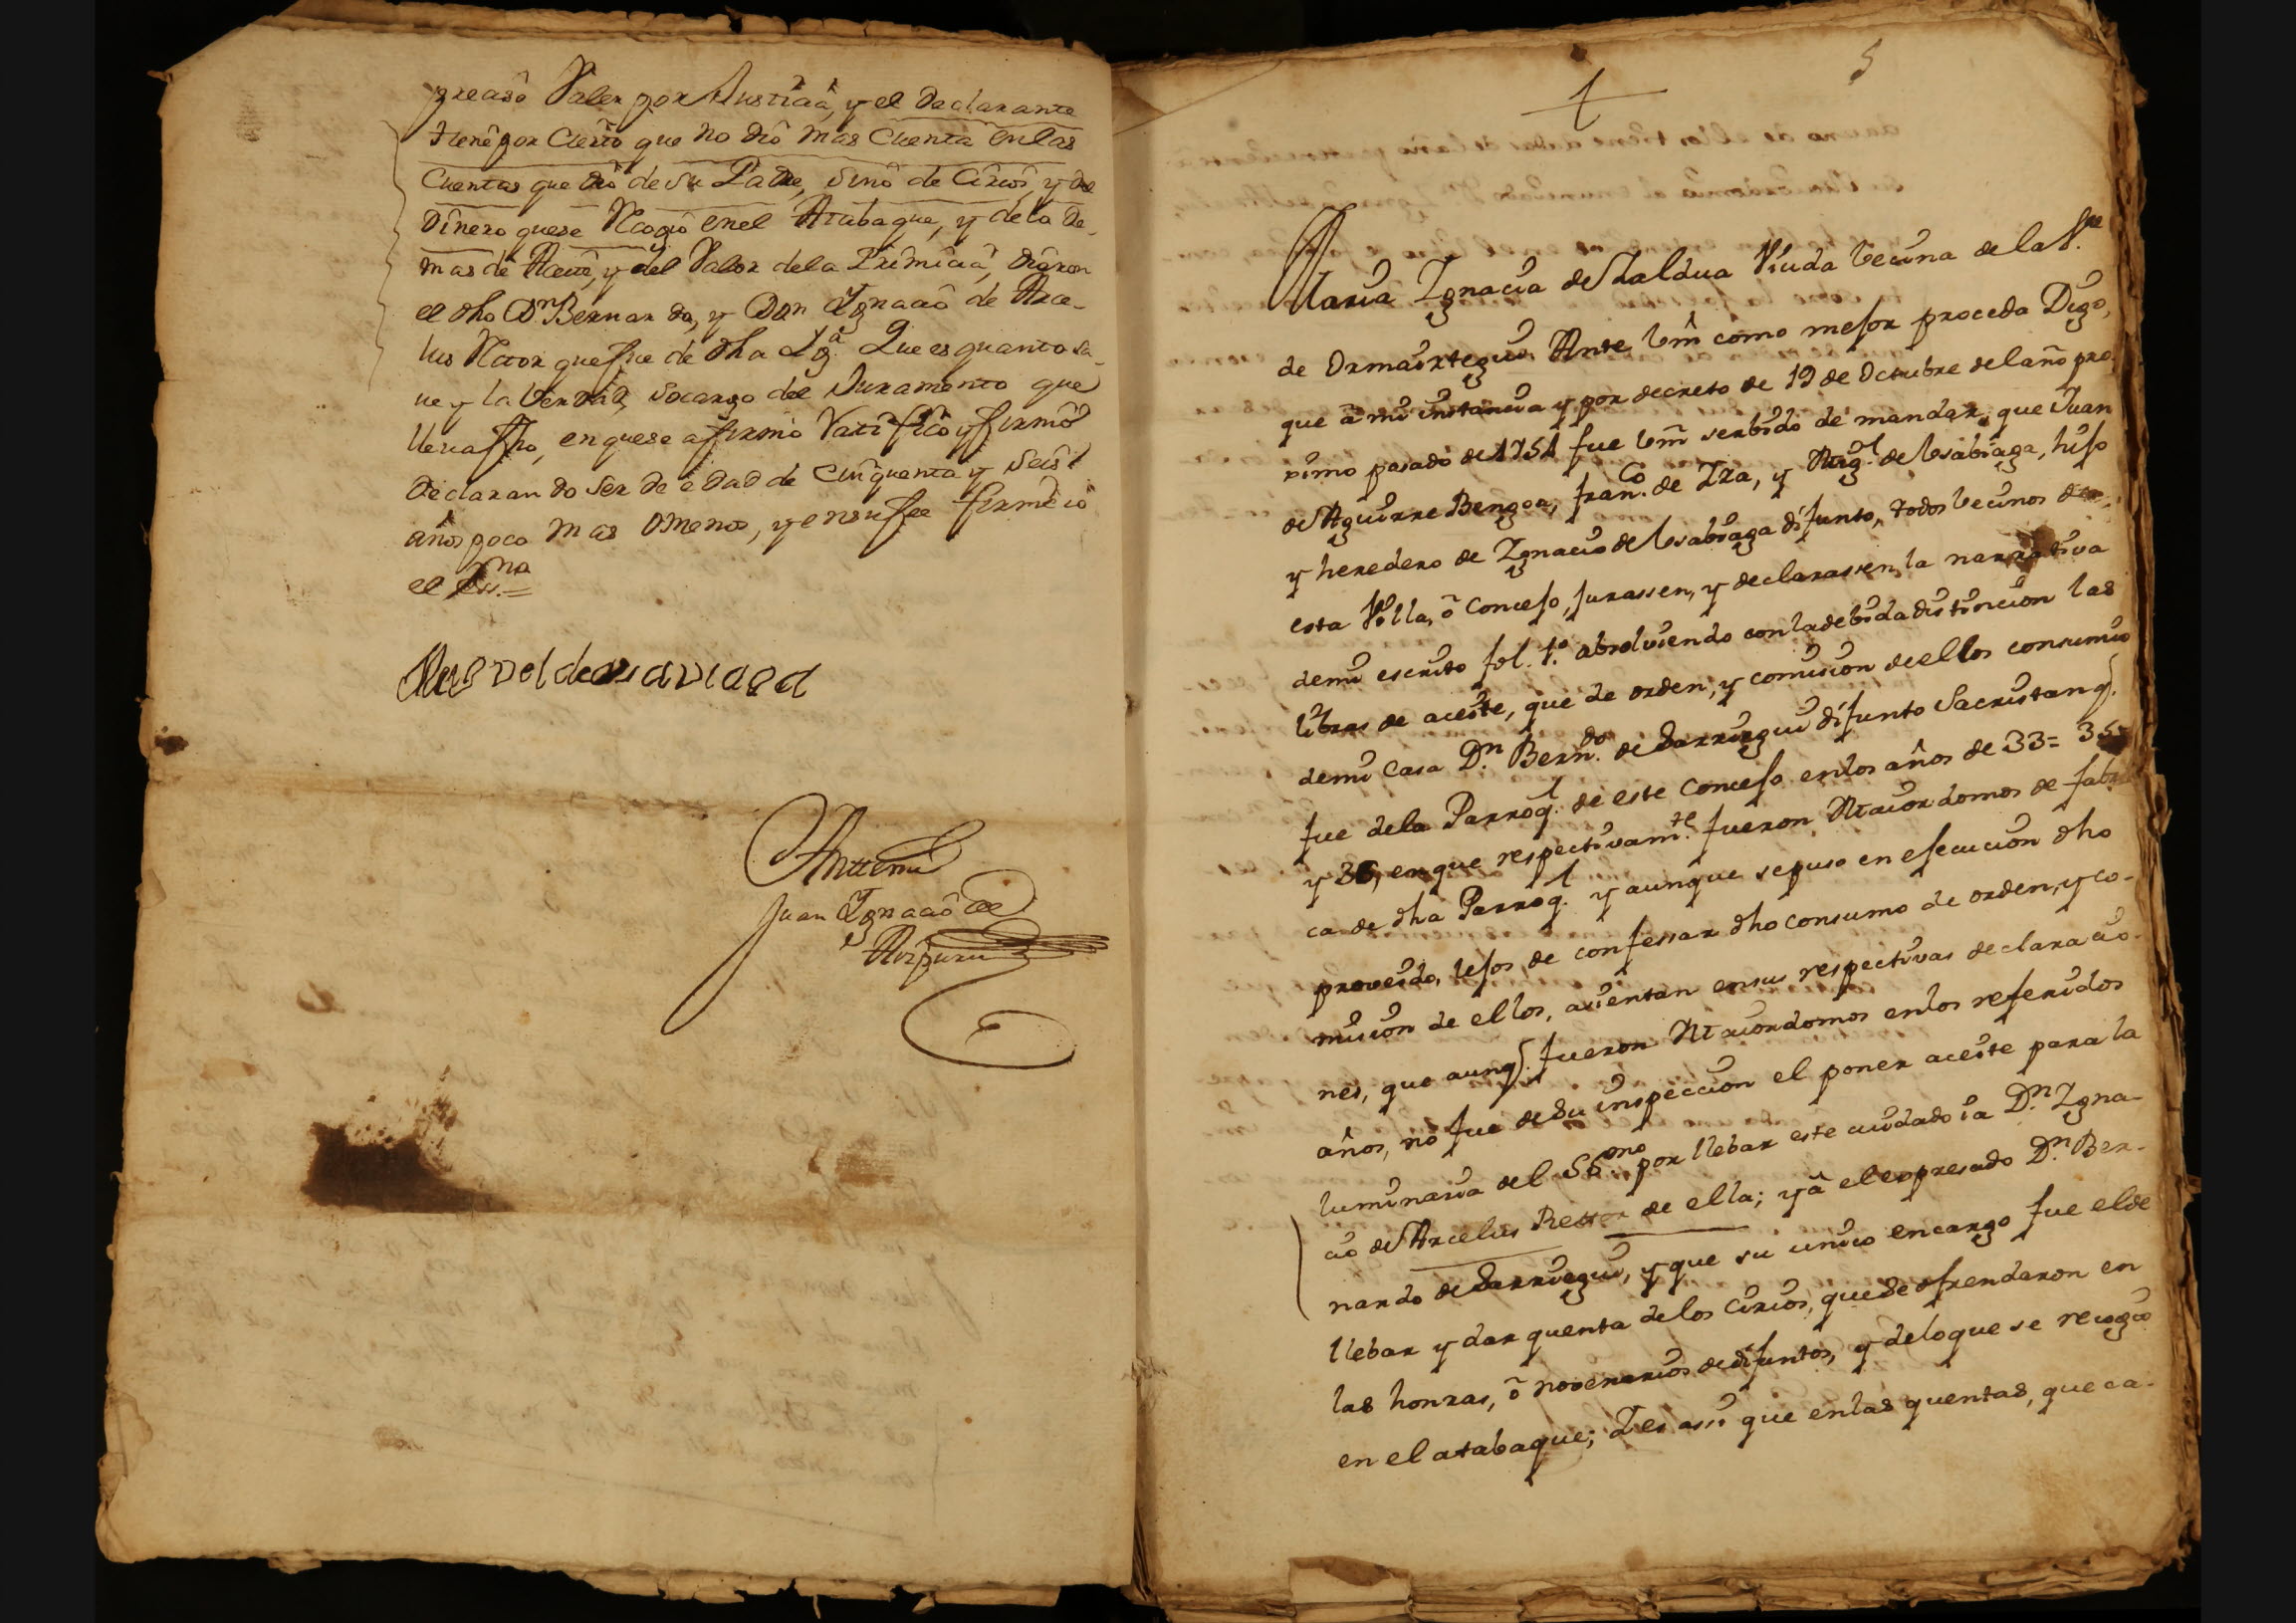 preciso Valer por Justicia, y el Declarante
tiene por Cierto que no dió mas Cuenta en las
Cuentas que dió de su Padre, sino de Cirios, y de
Dinero que se Recogió en el Atabaque, y de la de
mas de Aceite, y del Valor de la Primicia, dieron
el dho Dn Bernardo, y Don Ignacio de Arce-
lus Retor que fue de dha Ygª. Que es quanto sa-
ue y la Verdad, socargo del Juramento que
lleua fho, en que se afirmó Ratificó y firmó
Declarando ser de edad de Cinquenta y Seis
años poco mas omenos, y en su fee firmé io
el Essno =
Antemi
Juan Ignacio de
Aizpuru
5
Maria Ignacia de Zaldua Viuda Vecina de la Vª
de Ormaiztegui Ante Vm como mejor proceda Digo,
que â mi instancia y por decreto de 19 de Octubre del año pro-
ximo pasado de 1751 fue Vm serbido de mandar, que Juan
de Aguirre Bengoa, Franco. de Iza, y Migl. de Vsabiaga, hijo
y heredero de Ignacio de Vsabiaga difunto, todos Vecinos de
esta Villa, ô Concejo, jurassen, y declarassen la narrativa
demi escrito fol. 1º absolviendo con la debida distincion las
libras de aceite, que de orden, y comision de ellos consumio
demi Casa Dn. Berndo. de Sarriegui difunto Sacristan q.
fue dela Parroq.l de este Concejo en los años de 33= 35=
y 36, en que respectivamte. fueron Maiordomos de fabri
ca de dha Parroq.l y aunque sepuso en ejecucion dho
proveido, lejos de confessar dho consumo de orden, y co-
mision de ellos, asientan en sus respectivas declaracio-
nes, que aunq. fueron Maiordomos en los referidos
años, no fue de su inspeccion el poner aceite para la
luminaria del SSmo. por llebar este cuidado ia Dn. Igna-
cio de Arcelus Rettor de ella; y â el expresado Dn. Ber-
nardo de Sarriegui, y que su unico encargo fue el de
llebar y dar quenta de los Cirios, que se ofrendaron en
las honras, ô novenarios de difuntos, y de lo que se recogio
en el atabaque; Y es assi que en las quentas, que ca-